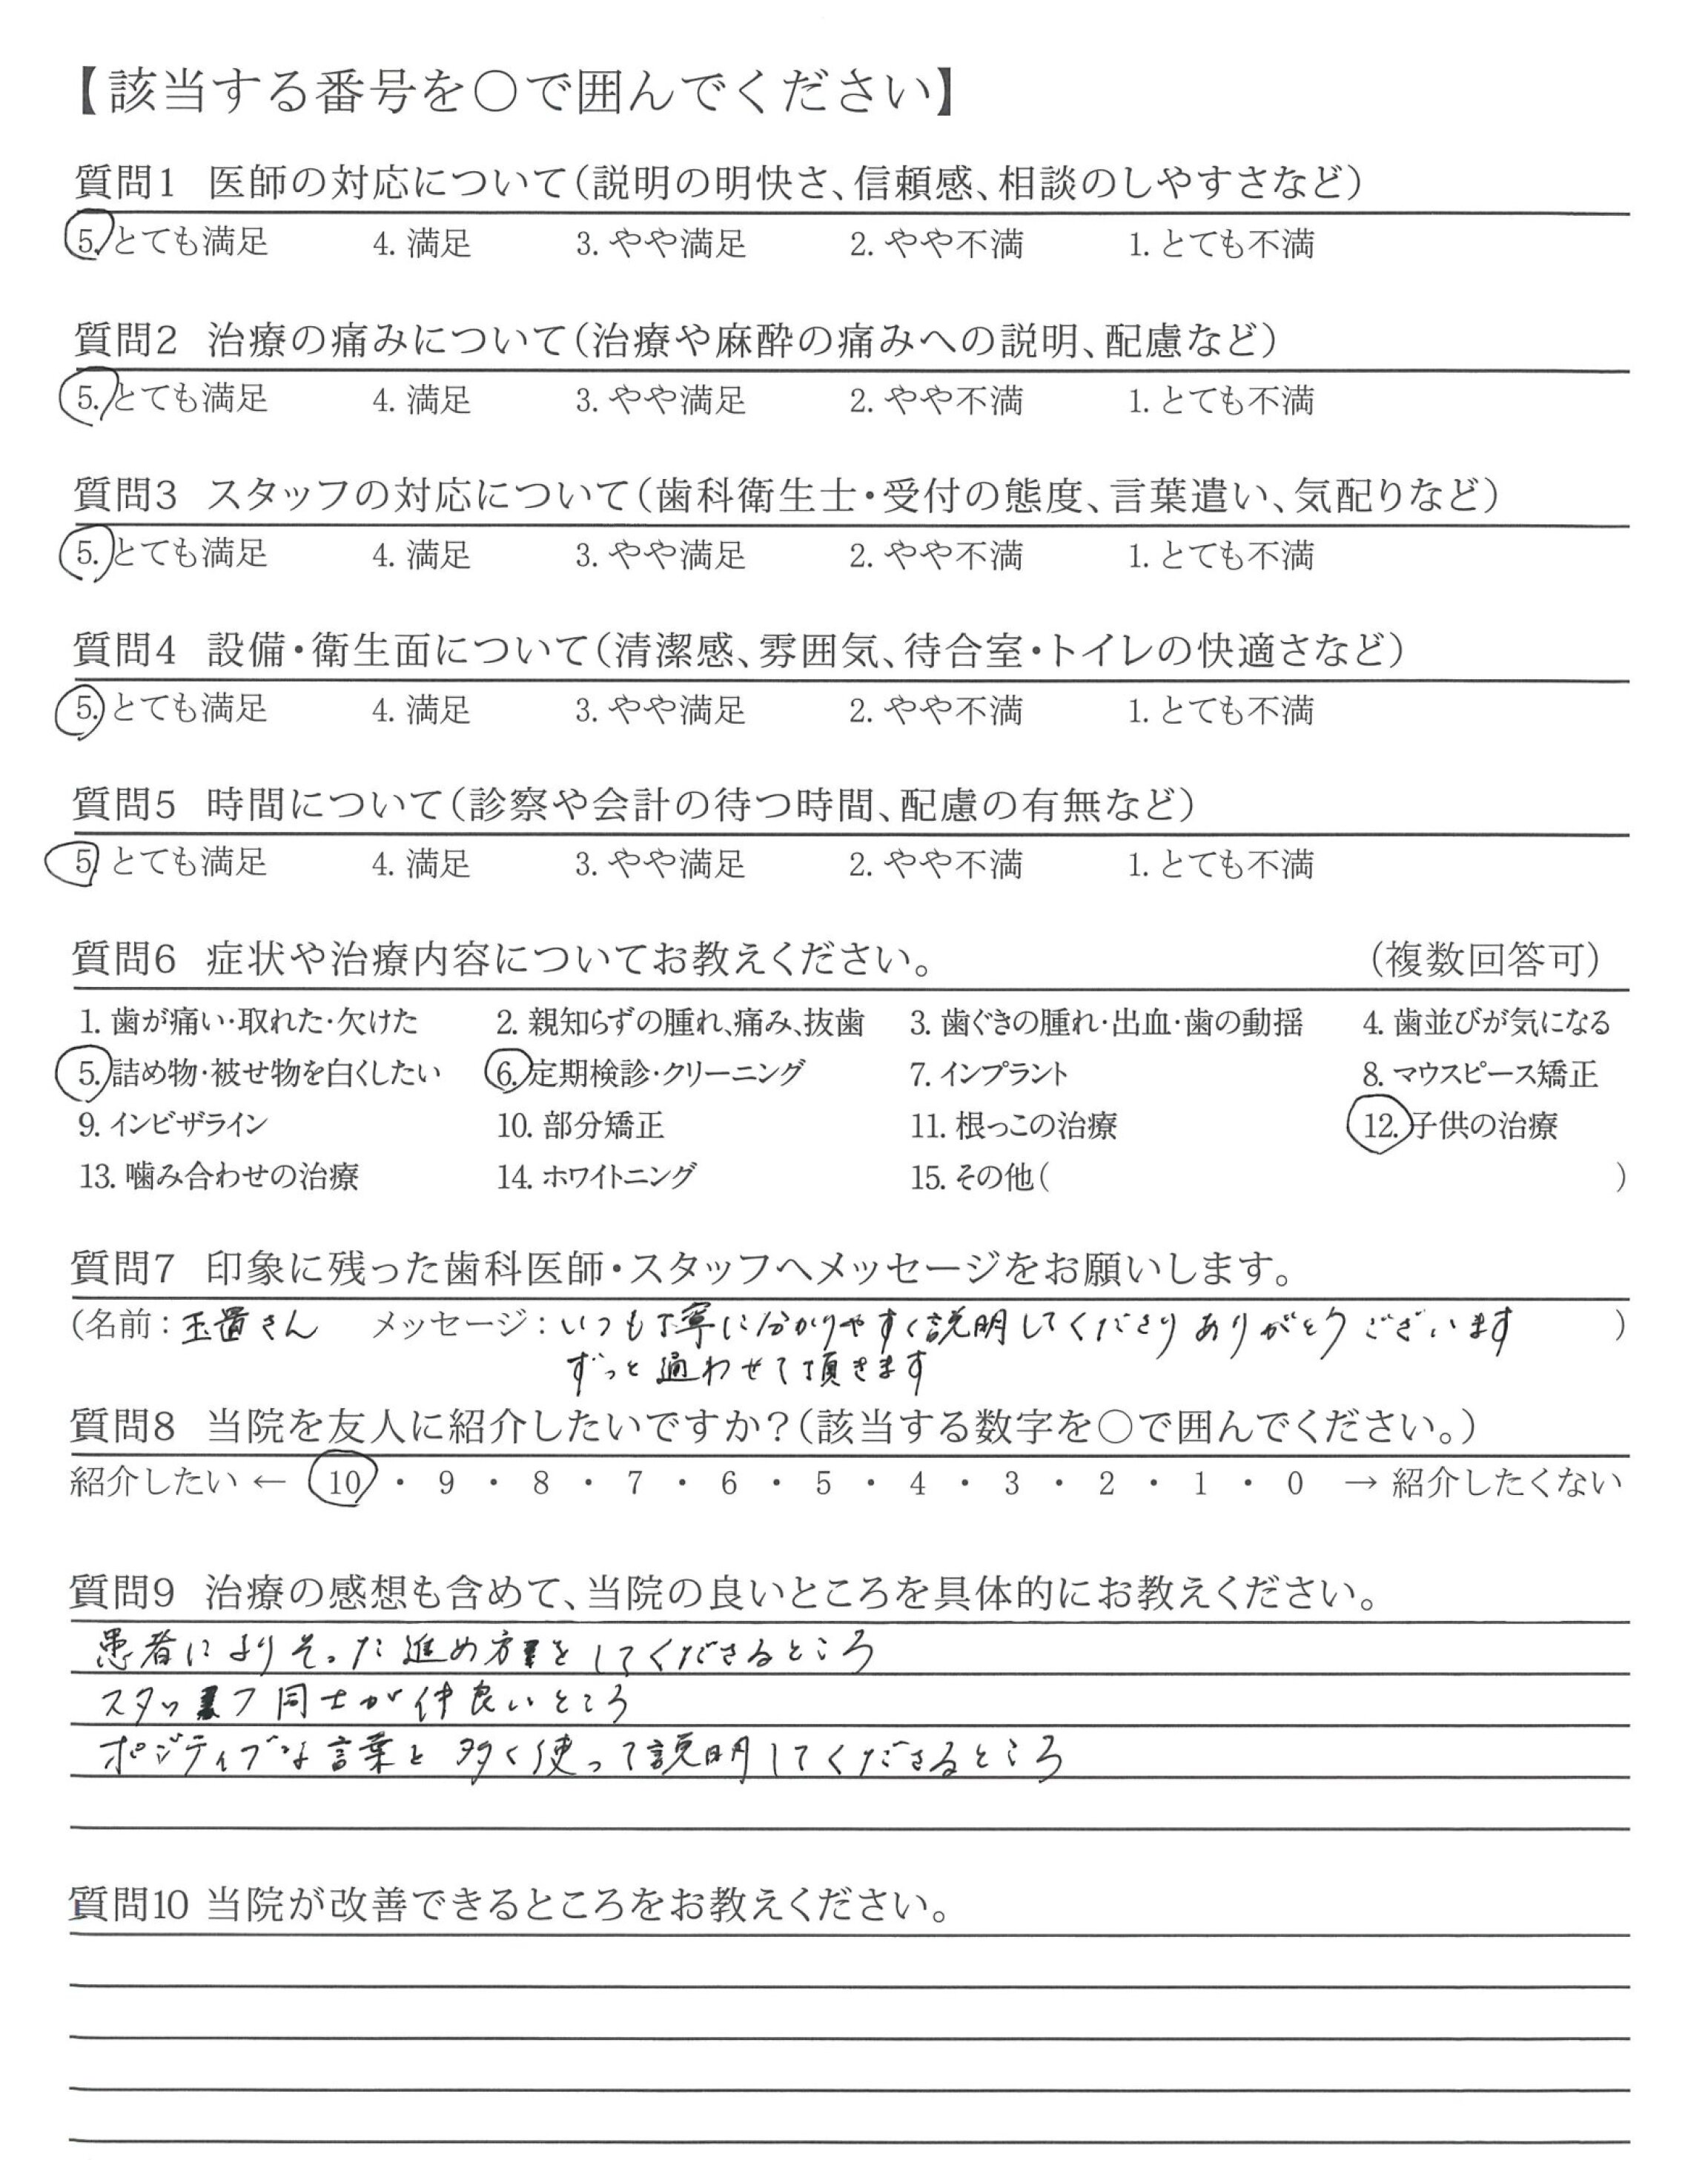 【該当する番号を○で囲んでください】
質問1 医師の対応について(説明の明快さ、信頼感、相談のしやすさなど)
5. とても満足 4. 満足 3. やや満足 2. やや不満 1. とても不満
質問2 治療の痛みについて(治療や麻酔の痛みへの説明、配慮など)
5. とても満足 4. 満足 3. やや満足 2. やや不満 1. とても不満
質問3 スタッフの対応について(歯科衛生士・受付の態度、言葉遣い、気配りなど)
5. とても満足 4. 満足 3. やや満足 2. やや不満 1. とても不満
質問4 設備・衛生面について(清潔感、雰囲気、待合室・トイレの快適さなど)
5. とても満足 4. 満足 3. やや満足 2. やや不満 1. とても不満
質問5 時間について(診察や会計の待つ時間、配慮の有無など)
5. とても満足 4. 満足 3. やや満足 2. やや不満 1. とても不満
質問6 症状や治療内容についてお教えください。 (複数回答可)
1. 歯が痛い・取れた・欠けた 2. 親知らずの腫れ、痛み、抜歯 3. 歯ぐきの腫れ・出血・歯の動揺 4. 歯並びが気になる
5. 詰め物・被せ物を白くしたい 6. 定期検診・クリーニング 7. インプラント 8. マウスピース矯正
9. インビザライン 10. 部分矯正 11. 根っこの治療 12. 子供の治療
13. 噛み合わせの治療 14. ホワイトニング 15. その他( )
質問7 印象に残った歯科医師・スタッフへメッセージをお願いします。
(名前：玉置さん メッセージ：いつも丁寧に分かりやすく説明してくださりありがとうございます )
ずっと通わせて頂きます
質問8 当院を友人に紹介したいですか？(該当する数字を○で囲んでください。)
紹介したい ← 10 ・ 9 ・ 8 ・ 7 ・ 6 ・ 5 ・ 4 ・ 3 ・ 2 ・ 1 ・ 0 → 紹介したくない
質問9 治療の感想も含めて、当院の良いところを具体的にお教えください。
患者によりそった進め方をしてくださるところ
スタッフ同士が仲良いところ
ポジティブな言葉を多く使って説明してくださるところ
質問10 当院が改善できるところをお教えください。